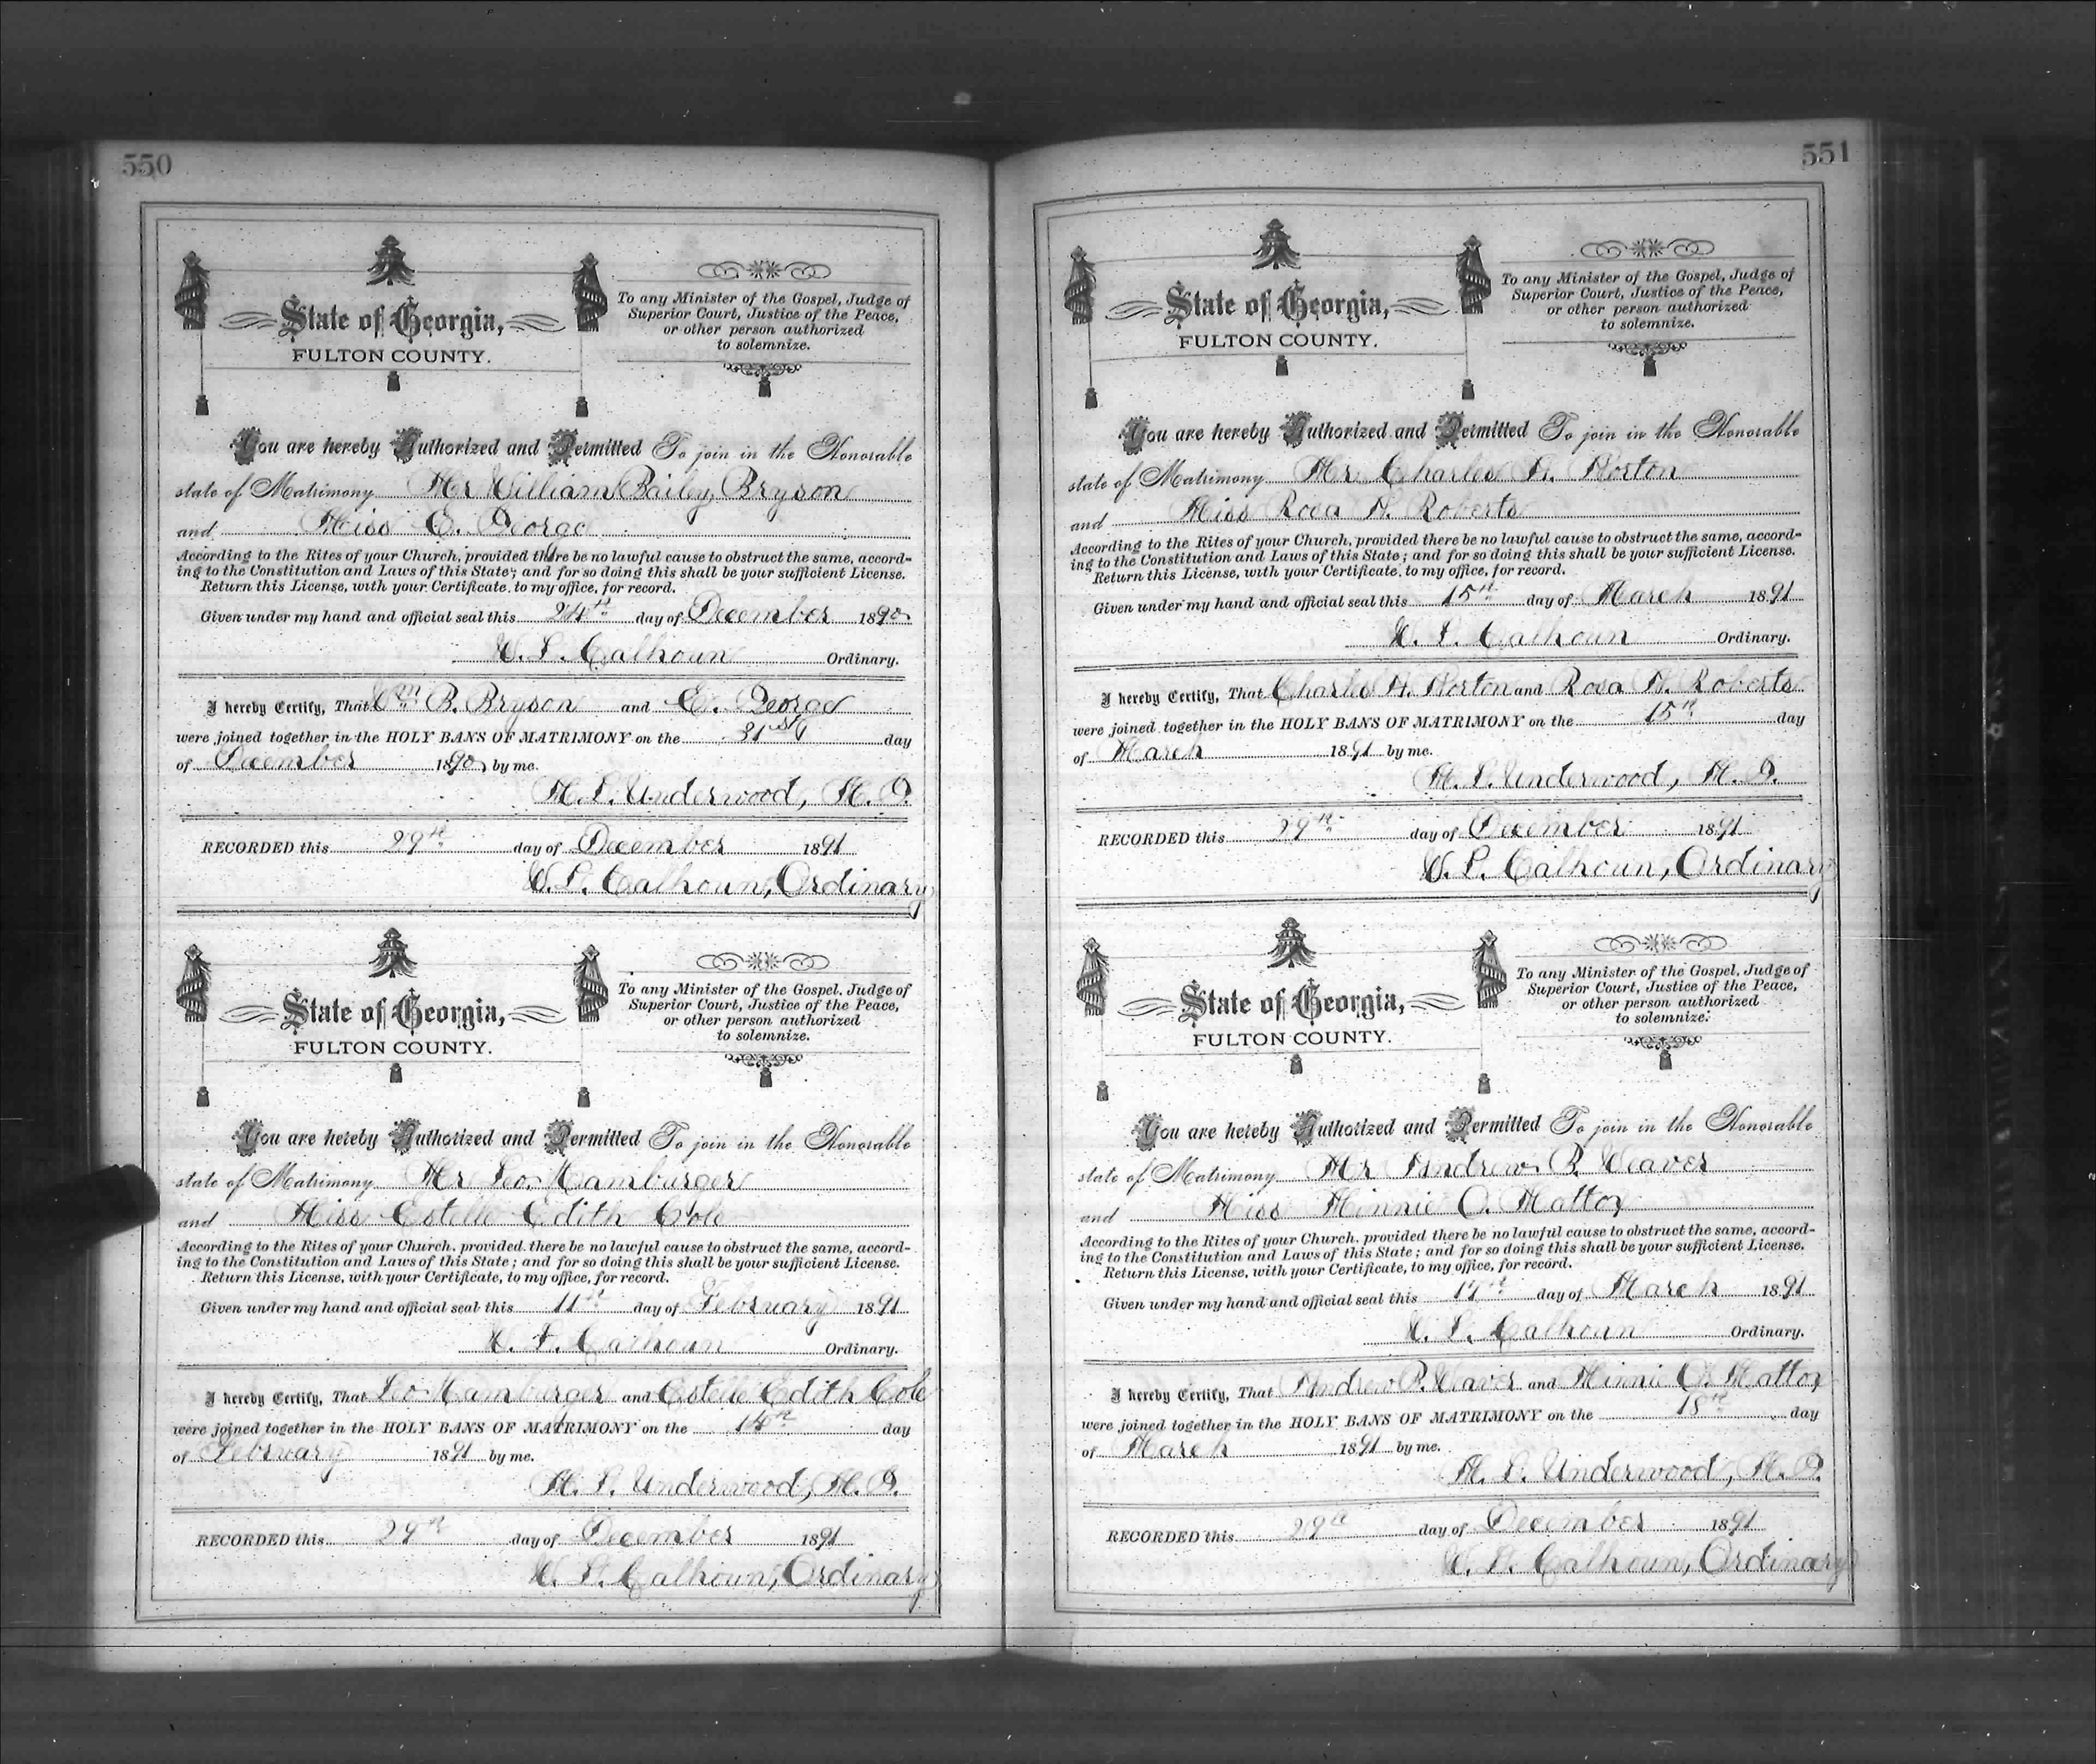 550
State of Georgia,
FULTON COUNTY.
To any Minister of the Gospel, Judge of
Superior Court, Justice of the Peace,
or other person authorized
to solemnize.
You are hereby Authorized and Permitted To join in the Honorable
state of Matrimony Mr William Bailey Bryson
and Miss E. George
According to the Rites of your Church, provided there be no lawful cause to obstruct the same, accord-
ing to the Constitution and Laws of this State; and for so doing this shall be your sufficient License.
Return this License, with your Certificate, to my office, for record.
Given under my hand and official seal this 24th day of December 1890
W. L. Calhoun Ordinary.
I hereby Certify, That Wm B. Bryson and E. George
were joined together in the HOLY BANS OF MATRIMONY on the 31st day
of December 1890 by me.
M. L. Underwood, M. G.
RECORDED this 29th day of December 1891
W. L. Calhoun, Ordinary
State of Georgia,
FULTON COUNTY.
To any Minister of the Gospel, Judge of
Superior Court, Justice of the Peace,
or other person authorized
to solemnize.
You are hereby Authorized and Permitted To join in the Honorable
state of Matrimony Mr Leo Hamburger
and Miss Estelle Edith Cole
According to the Rites of your Church, provided there be no lawful cause to obstruct the same, accord-
ing to the Constitution and Laws of this State; and for so doing this shall be your sufficient License.
Return this License, with your Certificate, to my office, for record.
Given under my hand and official seal this 11th day of February 1891
W. L. Calhoun Ordinary.
I hereby Certify, That Leo Hamburger and Estelle Edith Cole
were joined together in the HOLY BANS OF MATRIMONY on the day
of February 1891 by me.
M. L. Underwood, M. G.
RECORDED this 29th day of December 1891
W. L. Calhoun, Ordinary
551
State of Georgia,
FULTON COUNTY.
To any Minister of the Gospel, Judge of
Superior Court, Justice of the Peace,
or other person authorized
to solemnize.
You are hereby Authorized and Permitted To join in the Honorable
state of Matrimony Mr Charles H. Norton
and Miss Rosa A. Roberts
According to the Rites of your Church, provided there be no lawful cause to obstruct the same, accord-
ing to the Constitution and Laws of this State; and for so doing this shall be your sufficient License.
Return this License, with your Certificate, to my office, for record.
Given under my hand and official seal this 15th day of March 1891
W. L. Calhoun Ordinary.
I hereby Certify, That Charles H. Norton and Rosa A. Roberts
were joined together in the HOLY BANS OF MATRIMONY on the 15th day
of March 1891 by me.
M. L. Underwood, M. G.
RECORDED this 29th day of December 1891
W. L. Calhoun, Ordinary
State of Georgia,
FULTON COUNTY.
To any Minister of the Gospel, Judge of
Superior Court, Justice of the Peace,
or other person authorized
to solemnize.
You are hereby Authorized and Permitted To join in the Honorable
state of Matrimony Mr Andrew P. Weaver
and Miss Minnie O. Mattox
According to the Rites of your Church, provided there be no lawful cause to obstruct the same, accord-
ing to the Constitution and Laws of this State; and for so doing this shall be your sufficient License.
Return this License, with your Certificate, to my office, for record.
Given under my hand and official seal this 17th day of March 1891
W. L. Calhoun Ordinary.
I hereby Certify, That Andrew P. Weaver and Minnie O. Mattox
were joined together in the HOLY BANS OF MATRIMONY on the 18th day
of March 1891 by me.
M. L. Underwood, M. G.
RECORDED this 29th day of December 1891
W. L. Calhoun, Ordinary